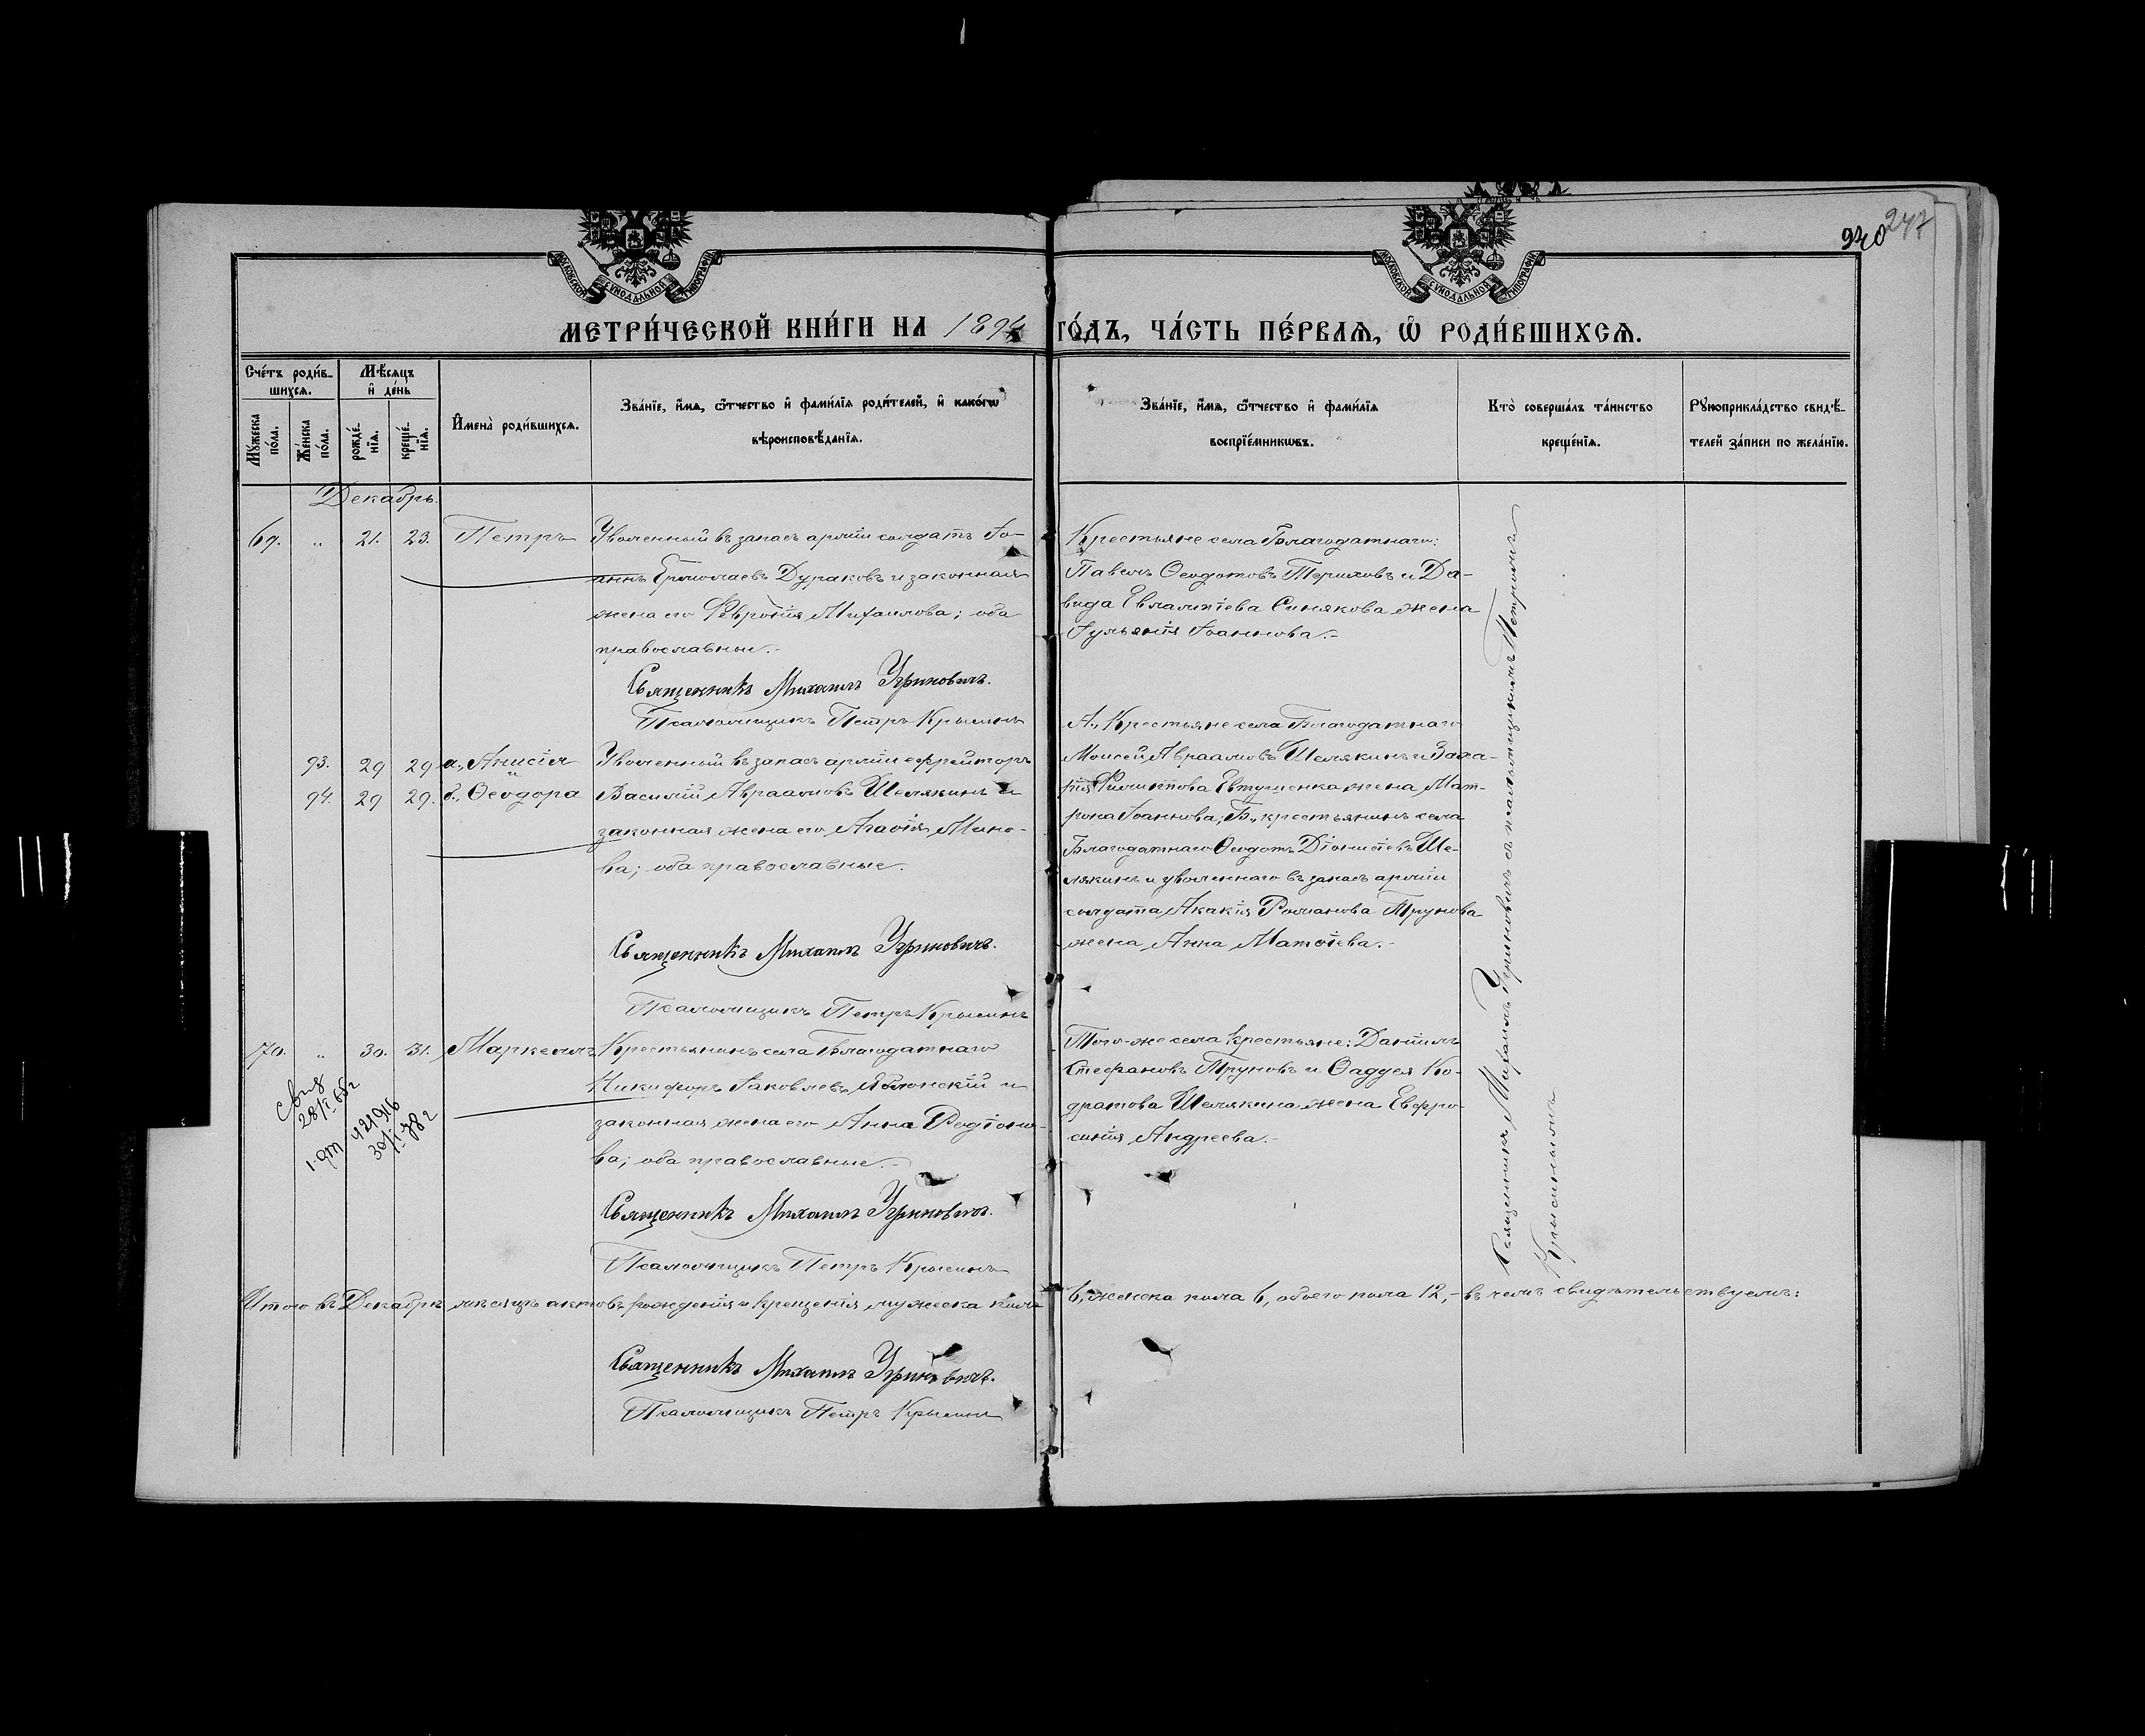 240 247
МОСКОВСКОЙ СУНОДАЛЬНОЙ ТИПОГРАФІИ
МОСКОВСКОЙ СУНОДАЛЬНОЙ ТИПОГРАФІИ
МЕТРИ́ЧЕСКОЙ КНИ́ГИ НА 1894 ГО́ДЪ, ЧА́СТЬ ПЕ́РВАѦ, Ѡ҆ РОДИ́ВШИХСѦ.
Сче́тъ роди́в-
шихсѧ.
Мѣ́сяцъ
и҆ де́нь
Мꙋ́жеска
по́ла.
Же́нска
по́ла.
рожде́-
нїѧ.
креще́-
нїѧ.
И҆мена̀ роди́вшихсѧ.
Зва́нїе, и҆́мѧ, ѻ҆́тчество и҆ фами́лїѧ роди́телей, и҆ како́гѡ
вѣроисповѣ́данїѧ.
Зва́нїе, и҆́мѧ, ѻ҆́тчество и҆ фами́лїѧ
воспрїе́мникѡвъ.
Кто̀ соверша́лъ та́инство
креще́нїѧ.
Рꙋкоприкла́дство свидѣ́-
телей за́писи по жела́нїю.
Декабрь.
69. „ 21. 23. Петръ
Уволенный въ запасъ арміи солдатъ Іо-
аннъ Ермолаевъ Дураковъ и законная
жена его Февронія Михаилова; оба
православные.-
Священникъ Михаилъ Угриновичъ.
Псаломщикъ Петръ Крысинъ
Крестьяне села Благодатнаго:
Павелъ Ѳеодотовъ Териховъ и Да-
вида Евлампіева Синякова жена
Іуліанія Іоаннова.-
93. 29 29 а., Анисія
и
94. 29 29. б., Ѳеодора
Уволенный въ запасъ арміи ефрейторъ
Василій Авраамовъ Шелякинъ и
законная жена его Агаѳія Мино-
ва; оба православные.
Священникъ Михаилъ Угриновичъ.
Псаломщикъ Петръ Крысинъ
А., Крестьяне села Благодатнаго
Моисей Авраамовъ Шелякинъ и Заха-
рія Филиппова Евтушенка жена Мат-
рона Іоаннова; Б., крестьянинъ села
Благодатнаго Ѳеодотъ Діонисіевъ Ше-
лякинъ и уволеннаго въ запасъ арміи
солдата Акакія Романова Трунова
жена Анна Матѳіева.-
70. „ 30. 31. Маркеллъ
Крестьянинъ села Благодатнаго
Никифоръ Іаковлевъ Яблонскій и
законная жена его Анна Родіоно-
ва; оба православные.-
Священникъ Михаилъ Угриновичъ.
Псаломщикъ Петръ Крысинъ
Того-же села крестьяне: Даніилъ
Стефановъ Труновъ и Ѳаддея Ко-
дратова Шелякина жена Евфро-
синія Андреева.-
Священникъ Михаилъ Угриновичъ съ псаломщикомъ Петромъ
Крысинымъ
Итого въ Декабрѣ мѣсяцѣ актовъ рожденія и крещенія мужеска пола 6, женска пола 6, обоего пола 12, - въ чемъ свидѣтельствуемъ:
Священникъ Михаилъ Угриновичъ.
Псаломщикъ Петръ Крысинъ